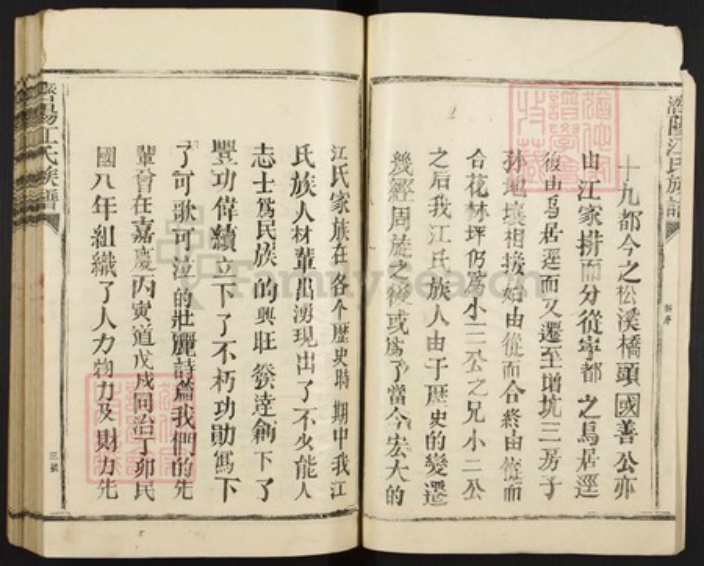 濟陽江氏族譜
十九都今之松溪橋頭國善公亦
由江家拼而分從寧都之馬居逕
後由馬居逕而又遷至增坑三房子
孫地壤相接始由從而合終由從而
合花林坪仍為小三公之兄小二公
之后我江氏族人由于歷史的變遷
幾經周旋之後或為了當今宏大的
新序
江氏家族在各个歷史時期中我江
氏族人材輩出湧現出了不少能人
志士為民族的興旺發達創下了
豐功偉績立下了不朽功勛寫下
了可歌可泣的壯麗詩篇我們的先
輩曾在嘉慶丙寅道戊戌同治丁卯民
國八年組織了人力物力及財力先
三號
濟陽江氏族譜
FamilySearch